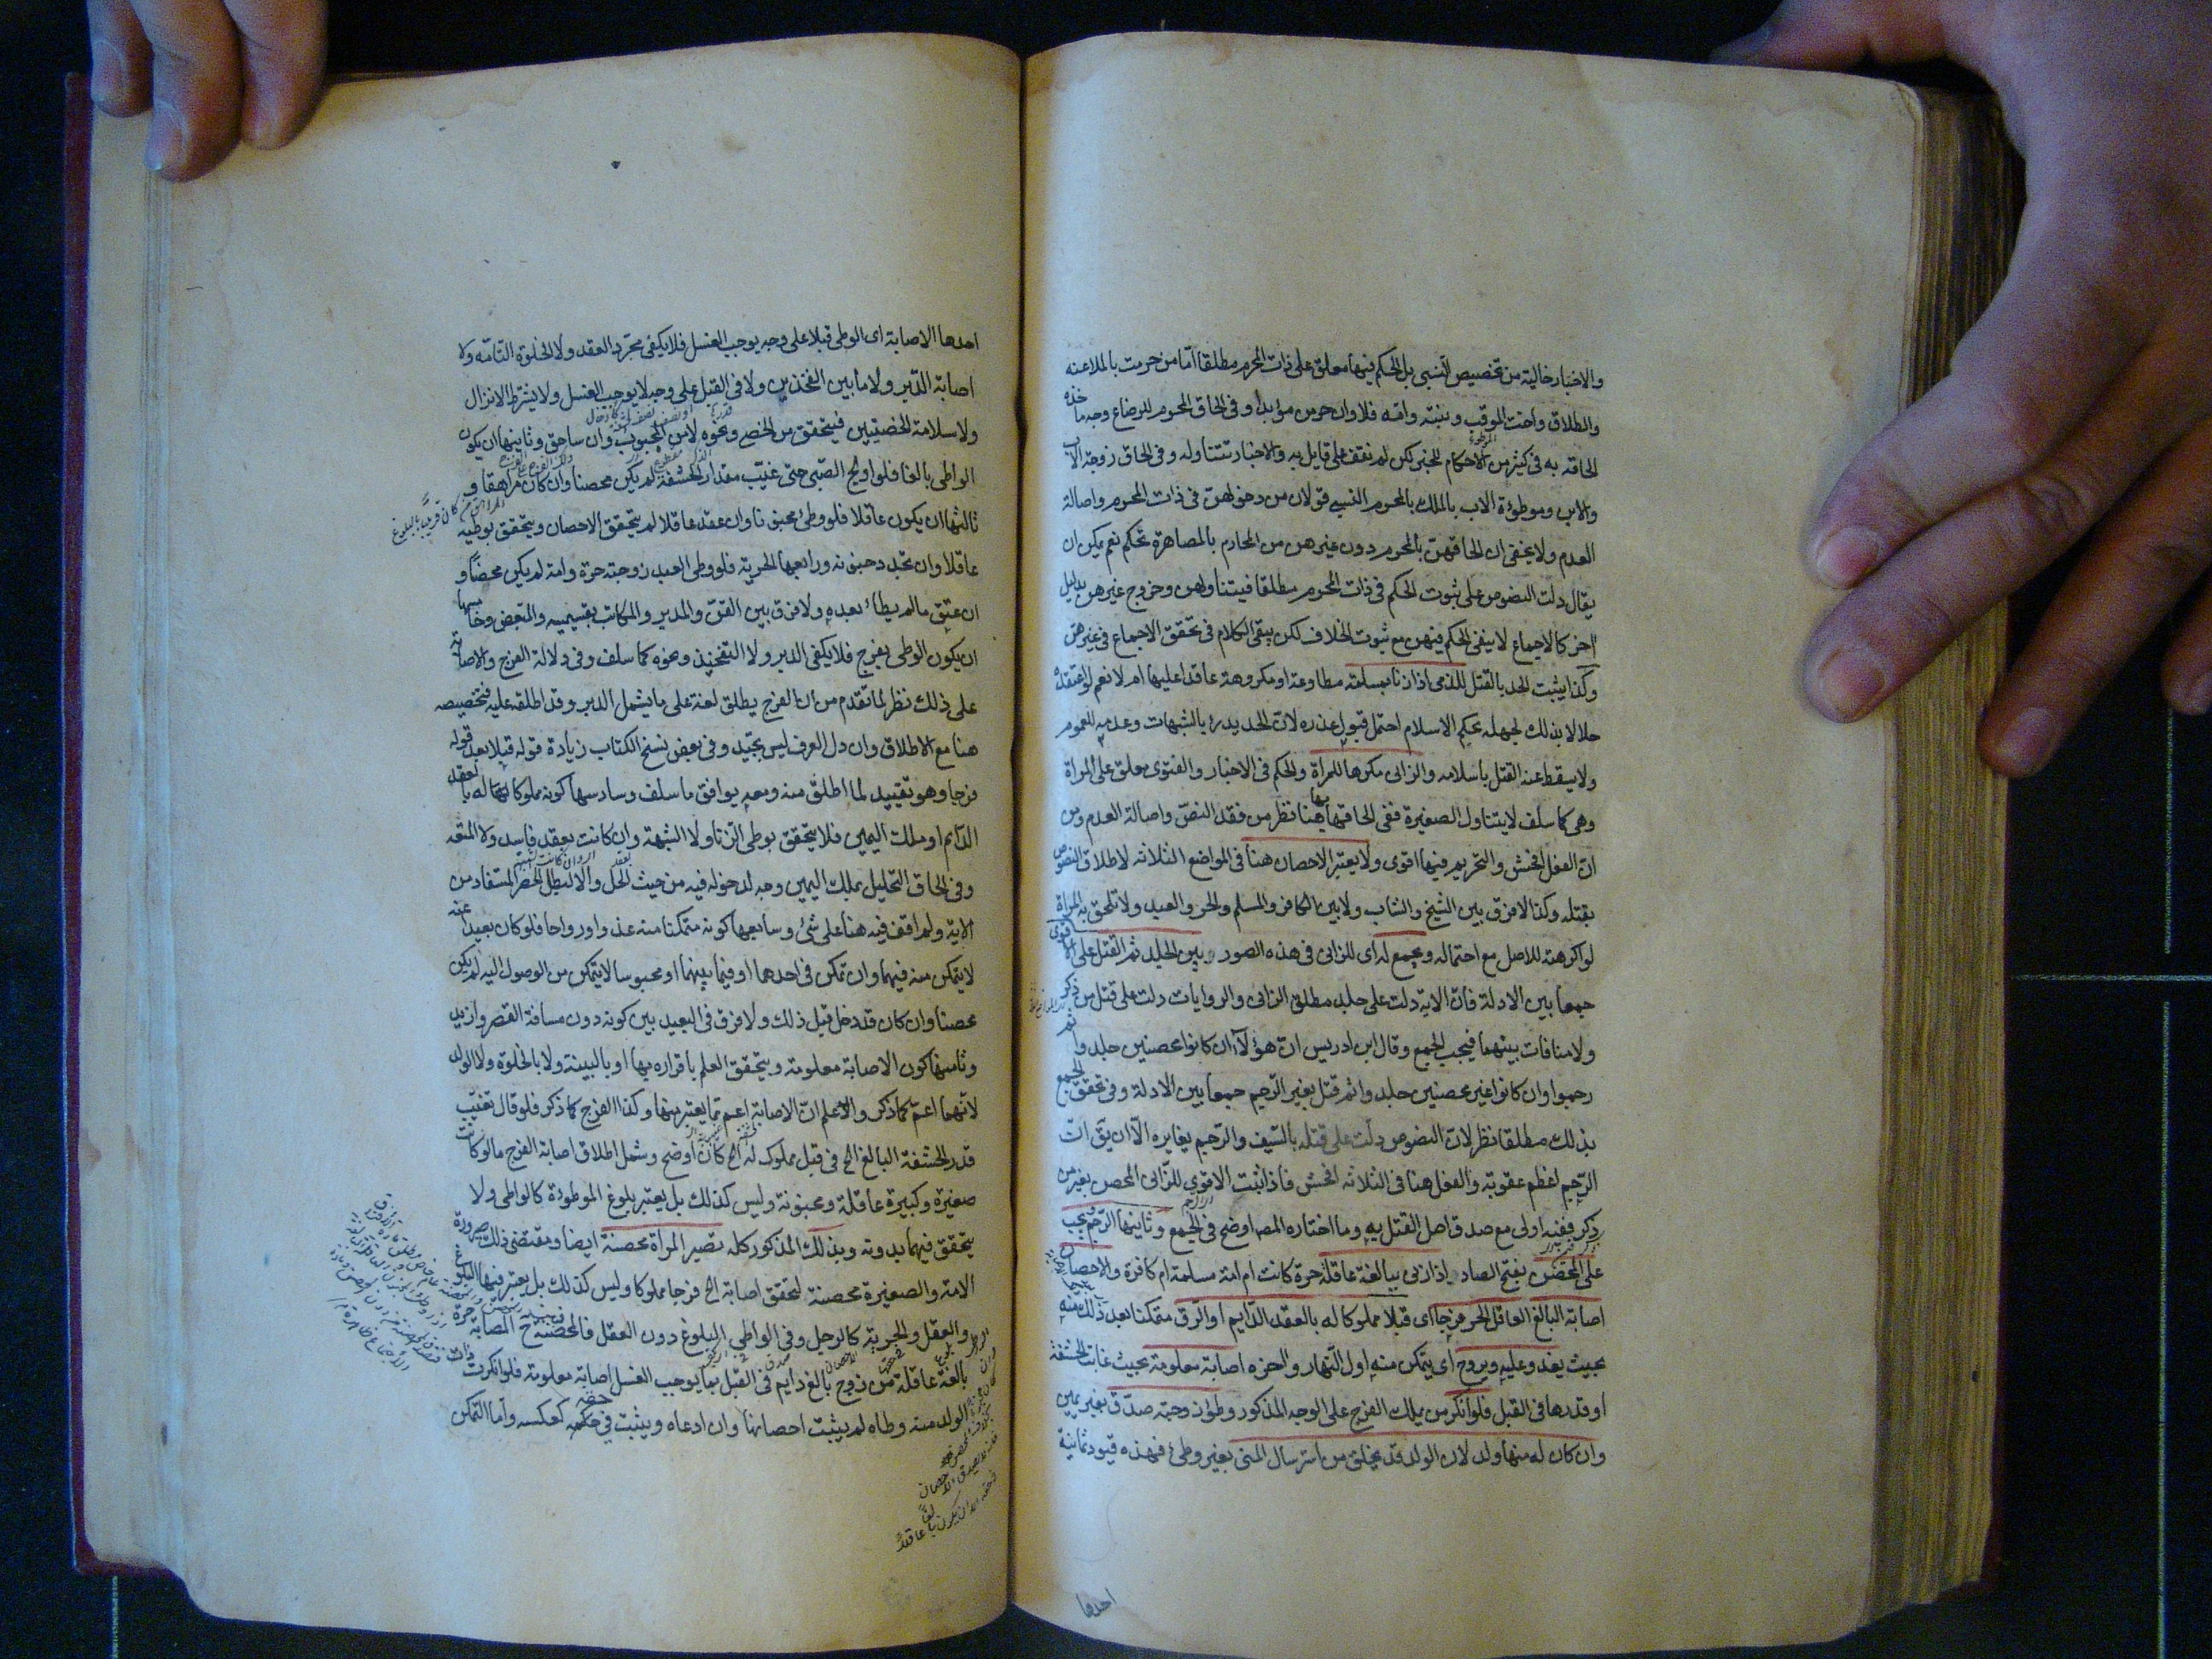 والاخبار خالية من تخصيص النسبى بل الحكم فيها معلق على ذات المحرم مطلقا امّا من حرمت بالملاعنه
والطلاق واخت الموقب وبنته وامّه فلا وان حرمن مؤبدا وفى الحاق المحرم للرضاع وجه ماخذه
الحاقه به فى كثير من الاحكام للخبر لكن لم نقف على قايل به والاخبار تتناوله وفى الحاق زوجة الاب
والابن وموطوءة الاب بالملك بالمحرم النسبى قولان من دخولهن فى ذات المحرم واصالة
العدم ولا يخفى ان الحاقهن بالمحرم دون غيرهن من المحارم بالمصاهرة تحكم نعم يمكن ان
يقال دلت النصوص على ثبوت الحكم فى ذات المحرم مطلقا فيتناولهن وخروج غيرهن بدليل
اخر كالاجماع لا ينفى الحكم فيهن مع ثبوت الخلاف لكن يبقى الكلام فى تحقق الاجماع فى غيرهن
وكذا يثبت الحد بالقتل للذمى اذا زنا بمسلمة مطاوعة او مكروهة عاقدا عليها ام لا نعم لو اعتقده
حلالا بذلك لجهله بحكم الاسلام احتمل قبول عذره لان الحد يدرء بالشبهات وعدمه للعموم
ولا يسقط عنه القتل باسلامه والزانى مكرها للمراة والحكم فى الاخبار والفتوى معلق على المراة
وهى كما سلف لا يتناول الصغيرة ففى الحاقها بها هنا نظر من فقد النصّ واصالة العدم ومن
انّ الفعل افحش والتحريم فيها اقوى ولا يعتبر الاحصان هنا فى المواضع الثلاثة لاطلاق النصوص
بقتله وكذا لا فرق بين الشيخ والشاب ولا بين الكافر والمسلم والحر والعبد ولا تلحق به المراة
لو اكرهته للاصل مع احتماله ويجمع له اى للزانى فى هذه الصور وبين الجلد ثم القتل على الاقوى
جمعا بين الادلة فان الاية دلت على جلد مطلق الزانى والروايات دلت على قتل من ذكر
ولا منافات بينهما فيجب الجمع وقال ابن ادريس ان هؤلاء ان كانوا محصنين جلدوا ثم
رجموا وان كانوا غير محصنين جلدوا ثم قتل بغير الرجم جمعا بين الادلة وفى تحقق الجمع
بذلك مطلقا نظر لان النصوص دلت على قتله بالسّيف والرّجم يغايره الّا ان يق انّ
الرّجم اعظم عقوبة والفعل هنا فى الثلاثه افحش فاذا ثبت الاقوى للزّانى المحصن بغير من
ذكر ففيه اولى مع صدق اصل القتل به وما اختاره المصـ اوضح فى الجمع وثانيها الرّجم ويجب
على المحصن بفتح الصاد اذا زنى ببالغة عاقلة حرة كانت ام امة مسلمة ام كافرة والاحصان
اصابة البالغ العاقل الحر فرجا اى قبلا مملوكا له بالعقد الدّايم او الرّق متمكنا بعد ذلك منه
بحيث يغدو عليه ويروح اى يتمكن منه اول النّهار واخره اصابة معلومة بحيث غابت الحشفة
او قدرها فى القبل فلو انكر من يملك الفرج على الوجه المذكور وطؤ زوجته صدّق بغير يمين
وان كان له منها ولد لان الولد قد يخلق من استرسال المنى بغير وطئ فهذه قيود ثمانية
احدها
احدها الاصابة اى الوطى قبلا على وجه يوجب الغسل فلا يكفى مجرّد العقد ولا الخلوة التامّه ولا
اصابة الدّبر ولا ما بين الفخذين ولا فى القبل على وجه لا يوجب الغسل ولا يشترط الانزال
ولا سلامة الخصيتين فيتحقق من الخصى ونحوه لا من المجبوب وان ساحق وثانيها ان يكون
الواطى بالغا فلو اولج الصّبى حتى غيّب مقدار الحشفة لم يكن محصنا وان كان مراهقا و
المراهق من كان قريبًا بالبلوغ
ثالثها ان يكون عاقلا فلو وطئ مجنونا وان عقد عاقلا لم يتحقق الاحصان ويتحقق بوطيه
عاقلا وان تجدد جنونه ورابعها الحرية فلو وطى العبد زوجته حرة وامة لم يكن محصنًا و
ان عتق ما لم يطا بعده ولا فرق بين القنّ والمدبر والمكاتب بقسيميه والمتبعض وخامسها
ان يكون الوطى بفرج فلا يكفى الدبر ولا التفخيذ ونحوه كما سلف وفى دلالة الفرج والاصابة
على ذلك نظر لما تقدم من ان الفرج يطلق لغة على ما يشمل الدبر وقد اطلقه عليه فتخصيصه
هنا مع الاطلاق وان دل العرف ليس بجيّد وفى بعض نسخ الكتاب زيادة قوله قبلا بعد قوله
فرجا وهو تقييد لما اطلق منه ومعه يوافق ما سلف وسادسها كونه مملوكا له بالعقد
الدّايم او ملك اليمين فلا يتحقق بوطى الزّنا ولا الشبهة وان كانت بعقد فاسد ولا المتعه
وفى الحاق التحليل بملك اليمين وجه لدخوله فيه من حيث الحل والا لبطل الحصر المستفاد من
الاية ولم اقف فيه هنا على شئ وسابعها كونه متمكنا منه غدوا ورواحا فلو كان بعيدا عنه
لا يتمكن منه فيهما وان تمكن فى احدهما او فيما بينهما او محبوسا لا يتمكن من الوصول اليه لم يكن
محصنا وان كان قد دخل قبل ذلك ولا فرق فى البعيد بين كونه دون مسافة القصر وازيد
وثامنها كون الاصابة معلومة ويتحقق العلم باقراره بها او بالبينة ولا بالخلوة ولا الولد
لانّهما اعمّ كما ذكر واعلم انّ الاصابة اعم ممّا يعتبر منها وكذا الفرج كما ذكر فلو قال تغيّب
قدر الحشفة البالغ الخ فى قبل مملوك له الخ كان اوضح وشمل اطلاق اصابة الفرج ما لو كانت
صغيرة وكبيرة عاقلة ومجنونة وليس كذلك بل يعتبر بلوغ الموطوءة كالواطى ولا
يتحقق فيهما بدونه وبذلك المذكور كله تصير المراة محصنة ايضا ومقتضى ذلك صيرورة
الامة والصغيرة محصنة لتحقق اصابة الخ فرجا مملوكا وليس كذلك بل يعتبر فيها البلوغ
والعقل والحرية كالرجل وفى الواطى البلوغ دون العقل فالمحصنة ح المصابة حرة
بالغة عاقلة من زوج بالغ دايم فى القبل بما يوجب الغسل اصابة معلومة فلو انكرت ذات
الولد منه وطاه لم يثبت احصانها وان ادعاه ويثبت فى حقه كعكسه وامّا التمكن